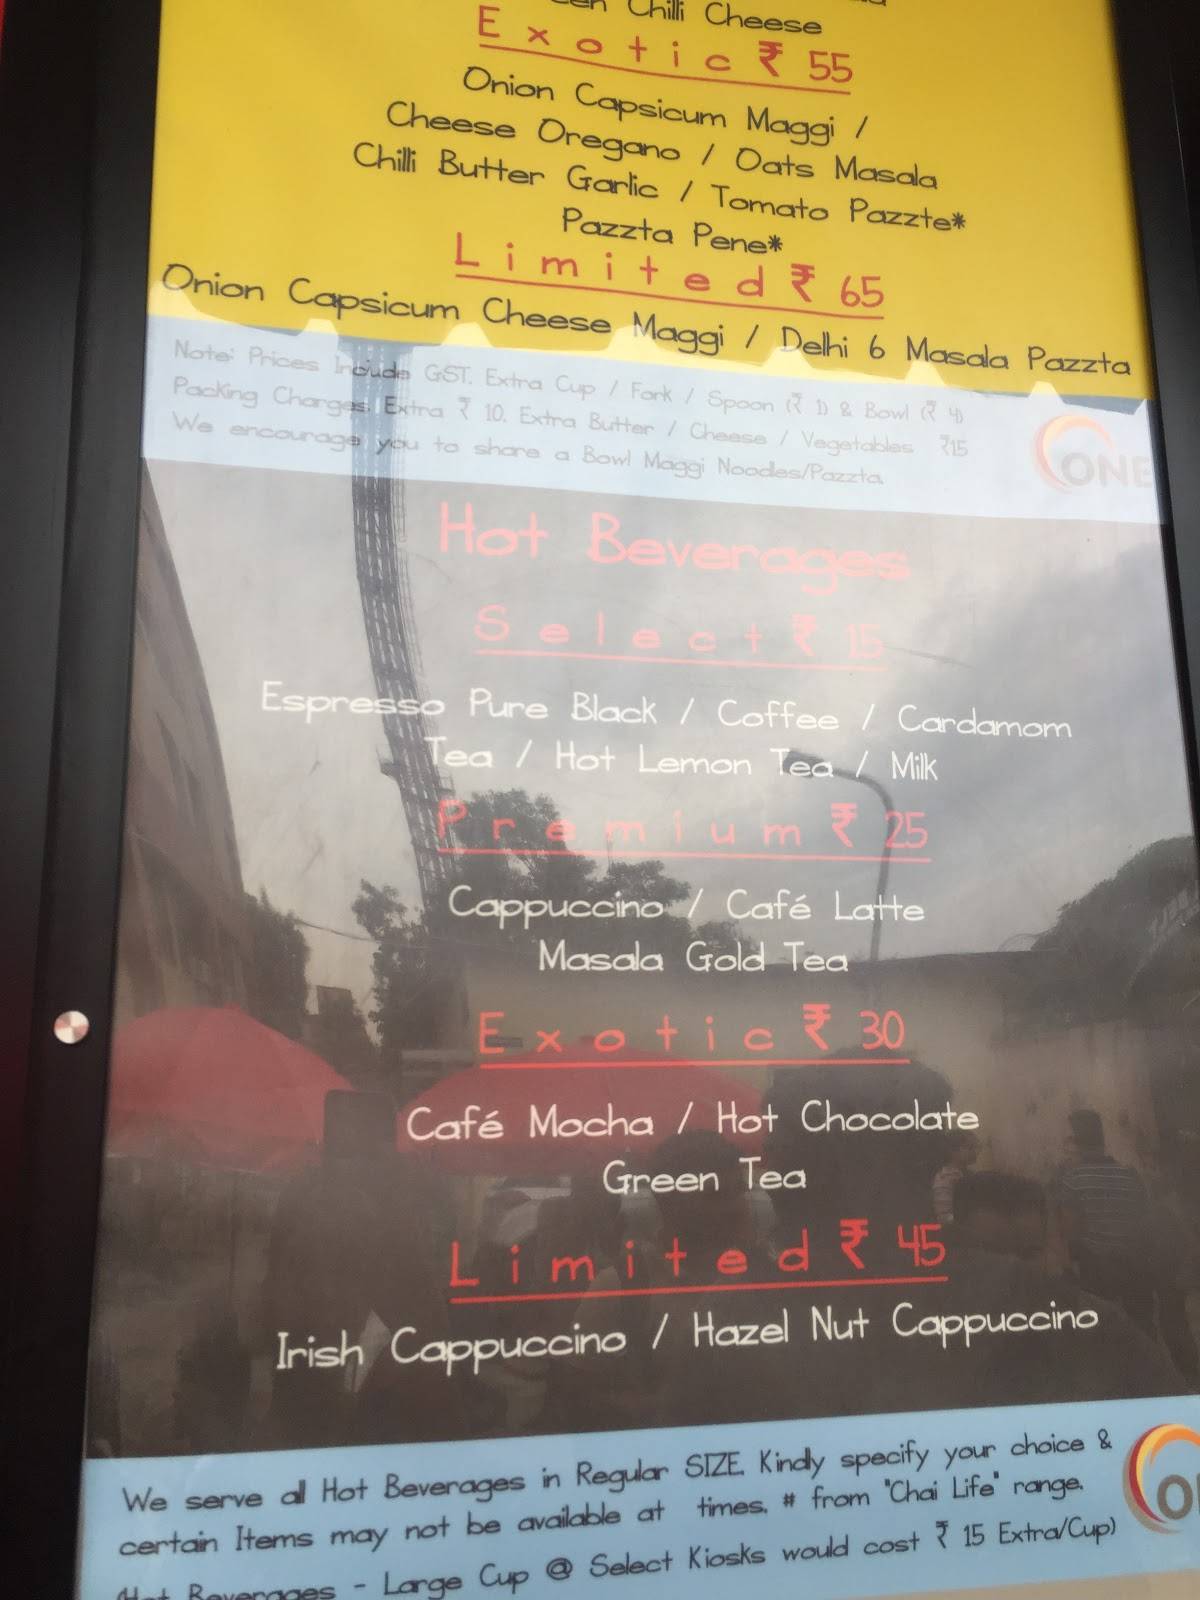 Chilli Cheese
Exotic ₹ 55
Onion Capsicum Maggi /
Cheese Oregano / Oats Masala
Chilli Butter Garlic / Tomato Pazzte*
Pazzta Pene*
Limited ₹ 65
Onion Capsicum Cheese Maggi / Delhi 6 Masala Pazzta
Note: Prices Include GST. Extra Cup / Fork / Spoon (₹ 1) & Bowl (₹ 4)
Packing Charges Extra ₹ 10. Extra Butter / Cheese / Vegetables ₹15
We encourage you to share a Bowl Maggi Noodles/Pazzta.
ONE
Hot Beverages
Select ₹ 15
Espresso Pure Black / Coffee / Cardamom
Tea / Hot Lemon Tea / Milk
Premium ₹ 25
Cappuccino / Café Latte
Masala Gold Tea
Exotic ₹ 30
Café Mocha / Hot Chocolate
Green Tea
Limited ₹ 45
Irish Cappuccino / Hazel Nut Cappuccino
We serve all Hot Beverages in Regular SIZE. Kindly specify your choice &
certain Items may not be available at times. # from "Chai Life" range.
(Hot Beverages - Large Cup @ Select Kiosks would cost ₹ 15 Extra/Cup)